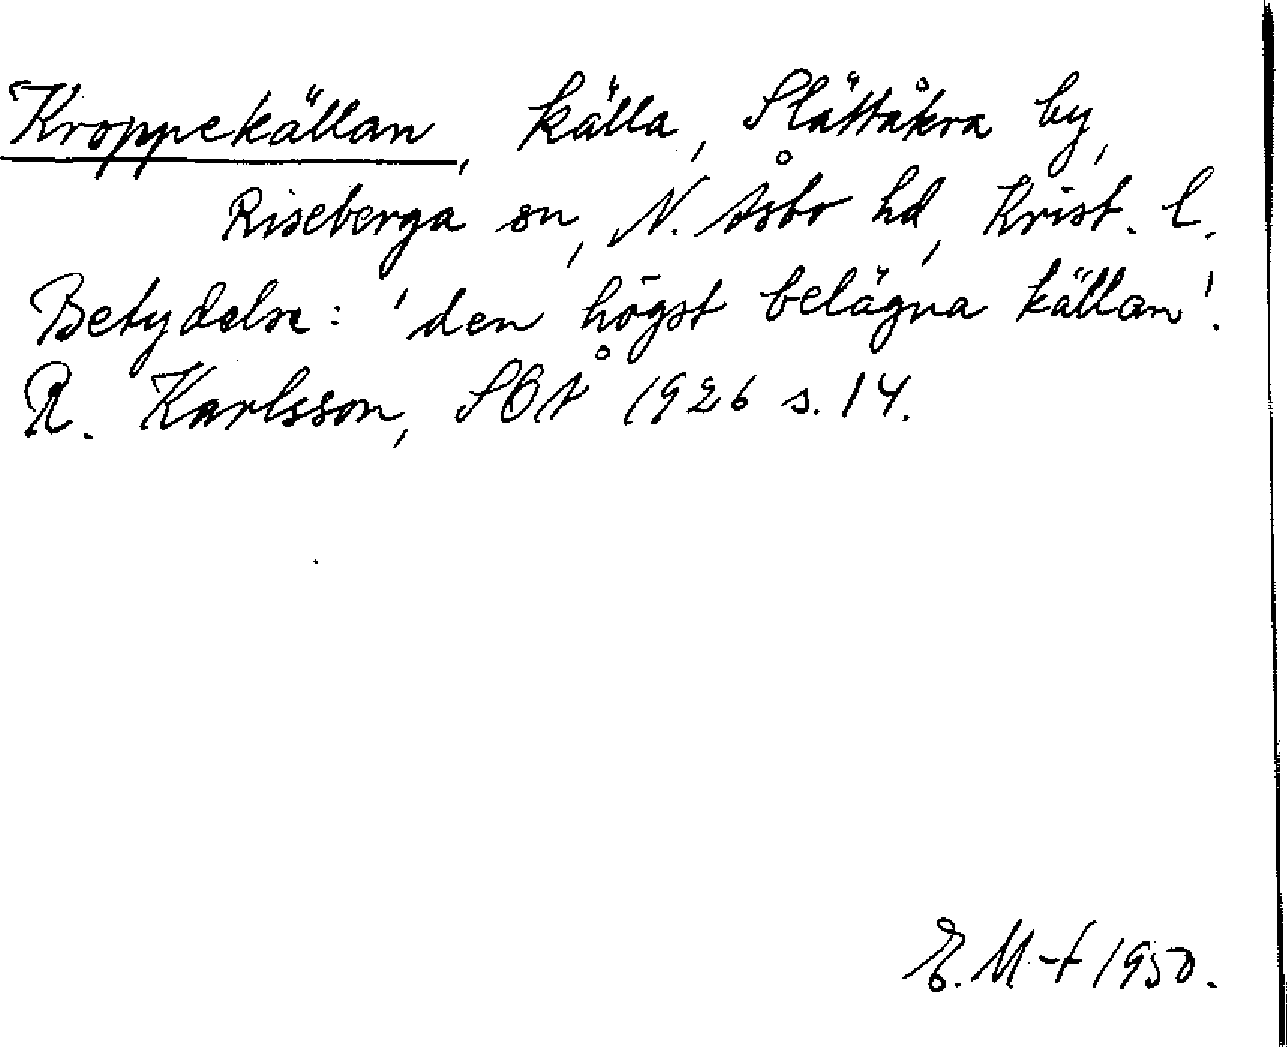 Kroppekällan, källa, Slättåkra by,
Riseberga sn, N. Åsbo hd, Krist. l.
Betydelse: 'den högst belägna källan'.
R. Karlsson, SOÅ 1926 s. 14.
E. M-t 1950.